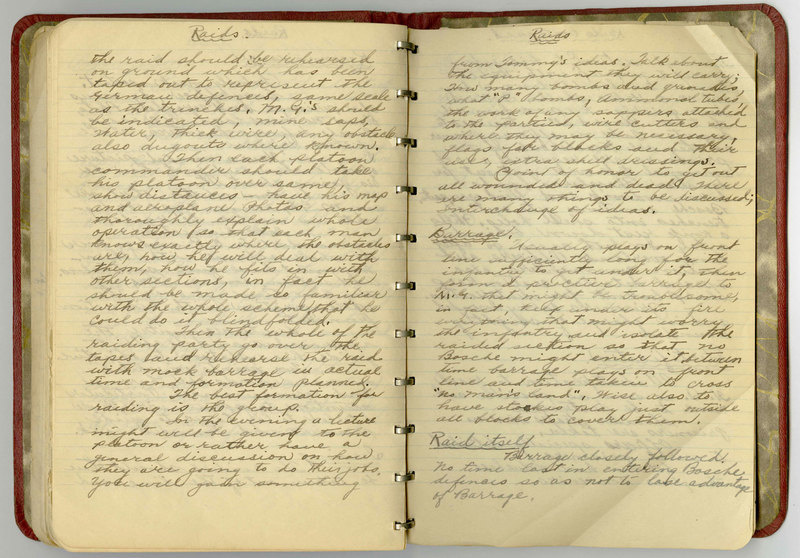 Raids.
the raid should be rehearsed
on ground which has been
taped out to represent the
German defences, same scale
as the trenches. M.G.'s should
be indicated, mine saps,
water, thick wire, any obstacle
also dugouts where known.
Then each platoon
commander should take
his platoon over same,
show distances – have his map
and aeroplane photos and
thoroughly explain whole
operation so that each man
knows exactly where the obstacles
are, how he will deal with
them, how he fits in with
other sections, in fact he
should be made so familiar
with the whole scheme that he
could do it blindfolded.
Then the whole of the
raiding party go over the
tapes and rehearse the raid
with mock barrage in actual
time and formation planned.
The best formation for
raiding is the group.
In the evening a lecture
might well be given to the
platoon or rather have a
general discussion on how
they are going to do their jobs.
You will gain something
Raids
from Tommy's ideas. Talk about
the equipment they will carry;
How many bombs and grenades,
what "P" bombs, ammonal tubes,
the work of any sappers attached
to the parties, wire cutters and
where they may be necessary,
flags for blocks and their
uses, extra shell dressings.
Point of honor to get out
all wounded and dead. There
are many things to be discussed;
Interchange of ideas.
Barrage.
Usually plays on front
line sufficiently long for the
infantry to get under it, then
form a protective barrage to
M.G. that might be troublesome,
in fact, keep under its fire
anything that might worry
the infantry and isolate the
raided section so that no
Bosche might enter it between
time barrage plays on front
line and time taken to cross
"no man's land". Wise also to
have stokes play just outside
all blocks to cover them.
Raid itself
Barrage closely followed,
no time lost in entering Bosche
defences so as not to lose advantage
of Barrage.